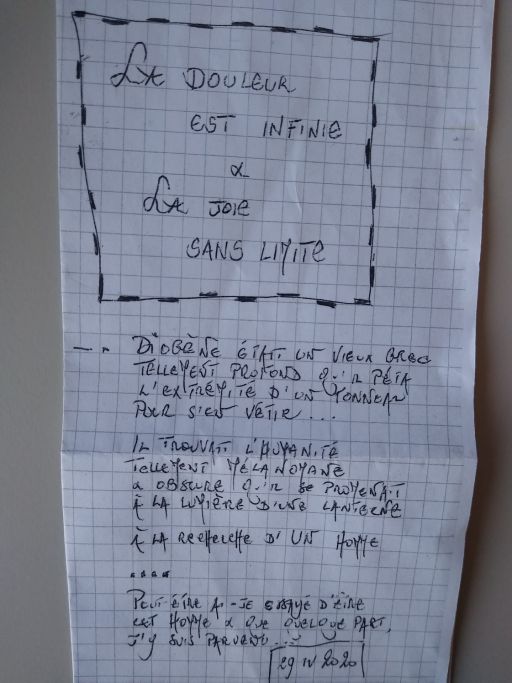 La DOULEUR
EST INFINIE
&
La JOIE
SANS LIMITE
—. DIOGÈNE ÉTAIT UN VIEUX GREC
TELLEMENT PROFOND QU'IL PÉTA
L'EXTRÉMITÉ D'UN TONNEAU
POUR S'EN VÊTIR ...
IL TROUVAIT L'HUMANITÉ
TELLEMENT MÉLANOMANE
& OBSURE QU'IL SE PROMENAIT
À LA LUMIÈRE D'UNE LANTERNE
À LA RECHERCHE D'UN HOMME
....
PEUT-ÊTRE AI-JE ESSAYÉ D'ÊTRE
CET HOMME & QUE QUELQUE PART,
J'Y SUIS PARVENU...
29 IV 2020